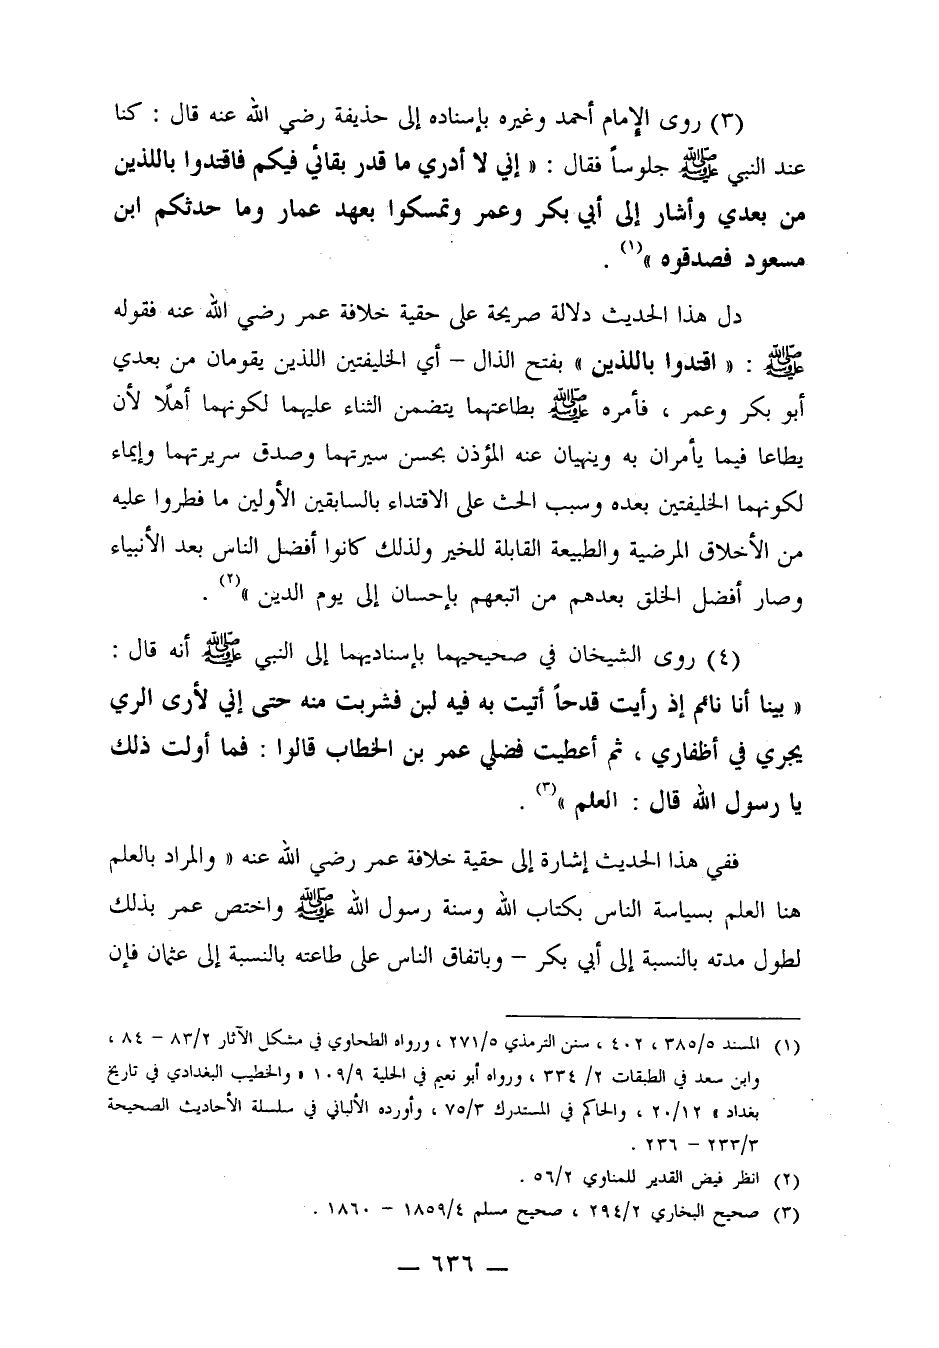 (٣) روى الإمام أحمد وغيره بإسناده إلى حذيفة رضي الله عنه قال : كنا
عند النبي ﷺ جلوساً فقال : « إني لا أدري ما قدر بقائي فيكم فاقتدوا باللذين
من بعدي وأشار إلى أبي بكر وعمر وتمسكوا بعهد عمار وما حدثكم ابن
مسعود فصدقوه »(١) .
دل هذا الحديث دلالة صريحة على حقية خلافة عمر رضي الله عنه فقوله
ﷺ : « اقتدوا باللذين » بفتح الذال – أي الخليفتين اللذين يقومان من بعدي
أبو بكر وعمر ، فأمره ﷺ بطاعتهما يتضمن الثناء عليهما لكونهما أهلًا لأن
يطاعا فيما يأمران به وينهيان عنه المؤذن بحسن سيرتهما وصدق سريرتهما وإيماء
لكونهما الخليفتين بعده وسبب الحث على الاقتداء بالسابقين الأولين ما فطروا عليه
من الأخلاق المرضية والطبيعة القابلة للخير ولذلك كانوا أفضل الناس بعد الأنبياء
وصار أفضل الخلق بعدهم من اتبعهم بإحسان إلى يوم الدين »(٢) .
(٤) روى الشيخان في صحيحيهما بإسناديهما إلى النبي ﷺ أنه قال :
« بينا أنا نائم إذ رأيت قدحاً أتيت به فيه لبن فشربت منه حتى إني لأرى الري
يجري في أظفاري ، ثم أعطيت فضلي عمر بن الخطاب قالوا : فما أولت ذلك
يا رسول الله قال : العلم »(٣) .
ففي هذا الحديث إشارة إلى حقية خلافة عمر رضي الله عنه « والمراد بالعلم
هنا العلم بسياسة الناس بكتاب الله وسنة رسول الله ﷺ واختص عمر بذلك
لطول مدته بالنسبة إلى أبي بكر – وباتفاق الناس على طاعته بالنسبة إلى عثمان فإن
(١) المسند ٣٨٥/٥ ، ٤٠٢ ، سنن الترمذي ٢٧١/٥ ، ورواه الطحاوي في مشكل الآثار ٨٣/٢ – ٨٤ ،
وابن سعد في الطبقات ٢/ ٣٣٤ ، ورواه أبو نعيم في الحلية ١٠٩/٩ « والخطيب البغدادي في تاريخ
بغداد » ٢٠/١٢ ، والحاكم في المستدرك ٧٥/٣ ، وأورده الألباني في سلسلة الأحاديث الصحيحة
٢٣٣/٣ – ٢٣٦ .
(٢) انظر فيض القدير للمناوي ٥٦/٢ .
(٣) صحيح البخاري ٢٩٤/٢ ، صحيح مسلم ١٨٥٩/٤ – ١٨٦٠ .
— ٦٣٦ —